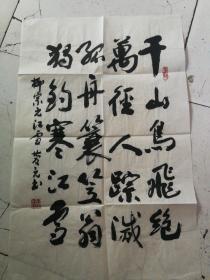 千山鳥飛絕
萬徑人踪滅
孤舟簑笠翁
獨釣寒江雪
柳宗元江雪